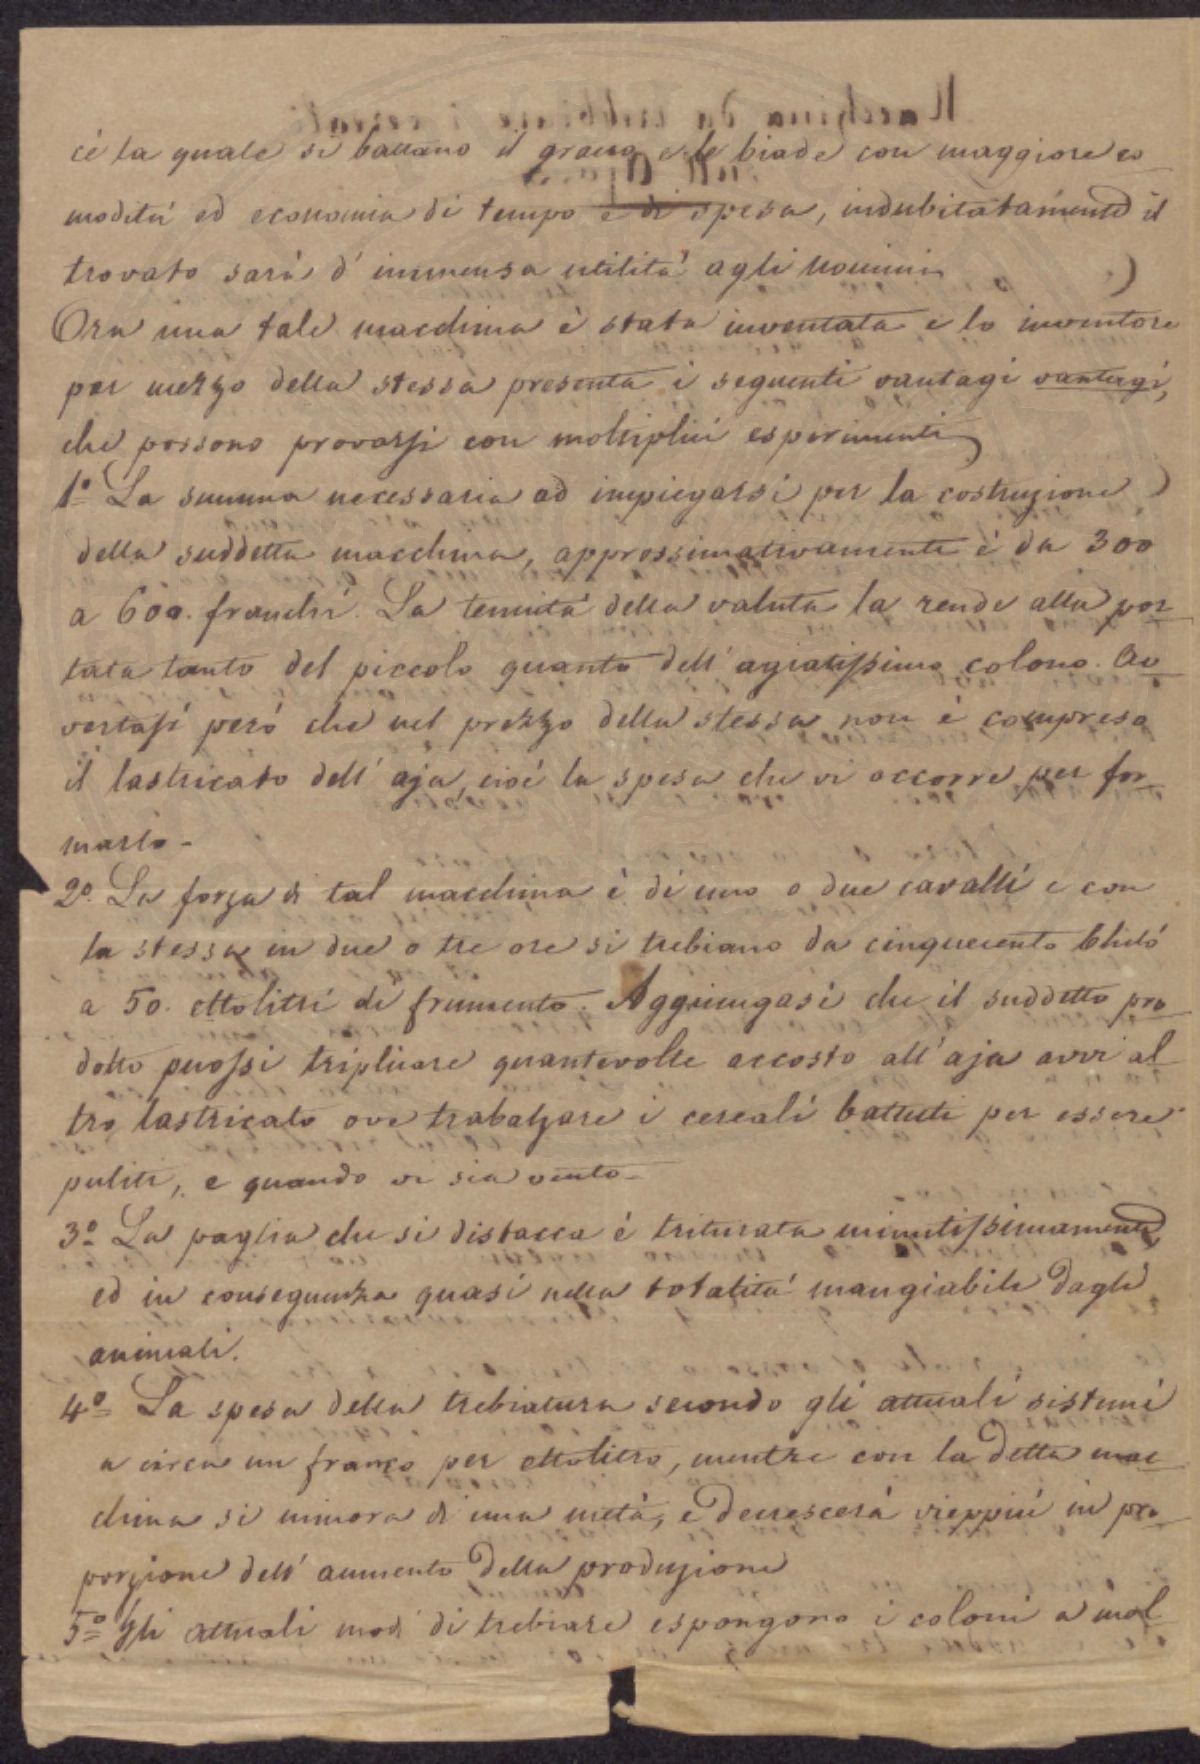 cé la quale si battano il grano e le biade con maggiore co
moditá ed economia di tempo e di spesa, indubitatamente il
trovato sará d' immensa utilitá agli uomini
Ora una tale macchina è stata inventata e lo inventore
per mezzo della stessa presenta i seguenti vantagi vantagi,
che possono provarsi con moltiplici esperimenti
1º La summa necessaria ad impiegarsi per la costruzione
della suddetta macchina, approssimativamente è da 300
a 600. franchi. La tenuitá della valuta la rende alla por
tata tanto del piccolo quanto dell' agiatissimo colono. Av
vertasi peró che nel prezzo della stessa non è compresa
il lastricato dell' aja, cioé la spesa che vi occorre per for
marlo -
2º. La forza di tal macchina è di uno o due cavalli e con
la stessa in due o tre ore si trebiano da cinquecento Chiló
a 50. ettolitri di frumento. Aggiungasi che il suddetto pro
dotto puossi triplicare quantevolte accosto all' aja avvi al
tro lastricato ove trabalzare i cereali battuti per essere
puliti, e quando vi sia vento -
3º La paglia che si distacca è triturata minutissimamente
ed in conseguenza quasi nella totalitá mangiabile dagli
animali.
4º La spesa della trebiatura secondo gli attuali sistemi
a circa un franco per ettolitro, mentre con la detta mac
china si minora di una metá, e decrescerá vieppiú in pro
porzione dell' aumento della produzione
5º Gli attuali modi di trebiare espongono i coloni a mol